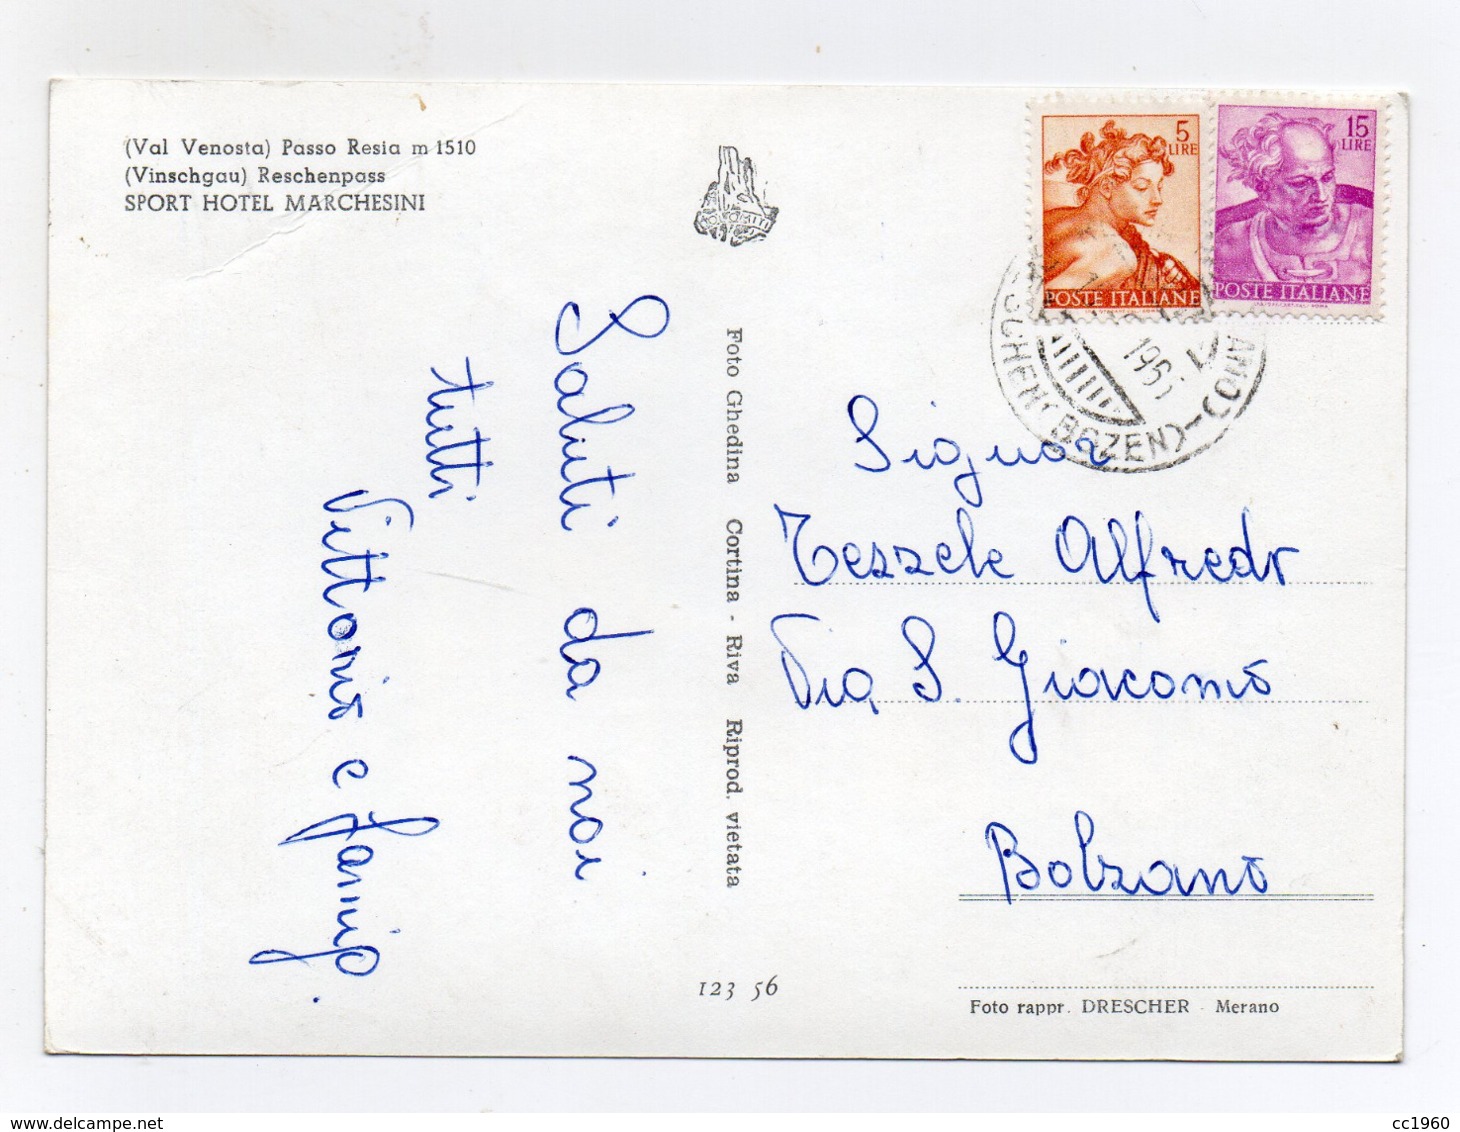 (Val Venosta) Passo Resia m 1510
(Vinschgau) Reschenpass
SPORT HOTEL MARCHESINI
Saluti da noi
tutti
Vittorio e famig.
Foto Ghedina Cortina - Riva Riprod. vietata
123 56
5
LIRE
POSTE ITALIANE
15
LIRE
POSTE ITALIANE
(BOZEN)
Signor
Tezzele Alfredo
Via S. Giacomo
Bolzano
Foto rappr. DRESCHER - Merano
www.delcampe.net
cc1960